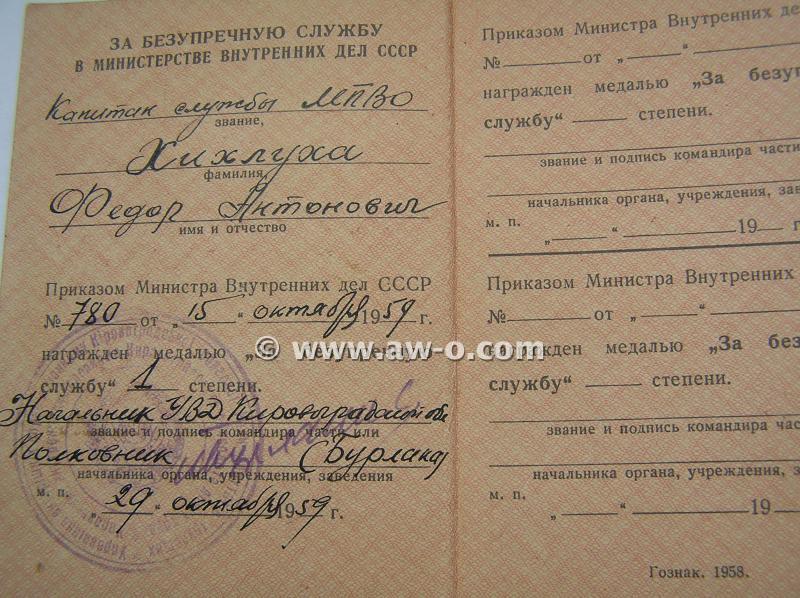 ЗА БЕЗУПРЕЧНУЮ СЛУЖБУ
В МИНИСТЕРСТВЕ ВНУТРЕННИХ ДЕЛ СССР
Капитан службы МПВО
звание,
Хихлуха
фамилия,
Федор Антонович
имя и отчество
Приказом Министра Внутренних дел СССР
№ 780 от „15“ октября 1959 г.
награжден медалью „За безупречную
службу“ 1 степени.
Начальник УВД Кировоградской обл
звание и подпись командира части или
Полковник (Бурлака)
начальника органа, учреждения, заведения
м. п. „29“ октября 1959 г.
Приказом Министра Внутренних де
№ от „ “
награжден медалью „За безуп
службу“ степени.
звание и подпись командира части
начальника органа, учреждения, зав
м. п. „ “ 19 г
Приказом Министра Внутренних
№ от „ “
награжден медалью „За безу
службу“ степени.
звание и подпись командира част
начальника органа, учреждения, за
м. п. „ “ 19
Гознак. 1958.
© www.aw-o.com